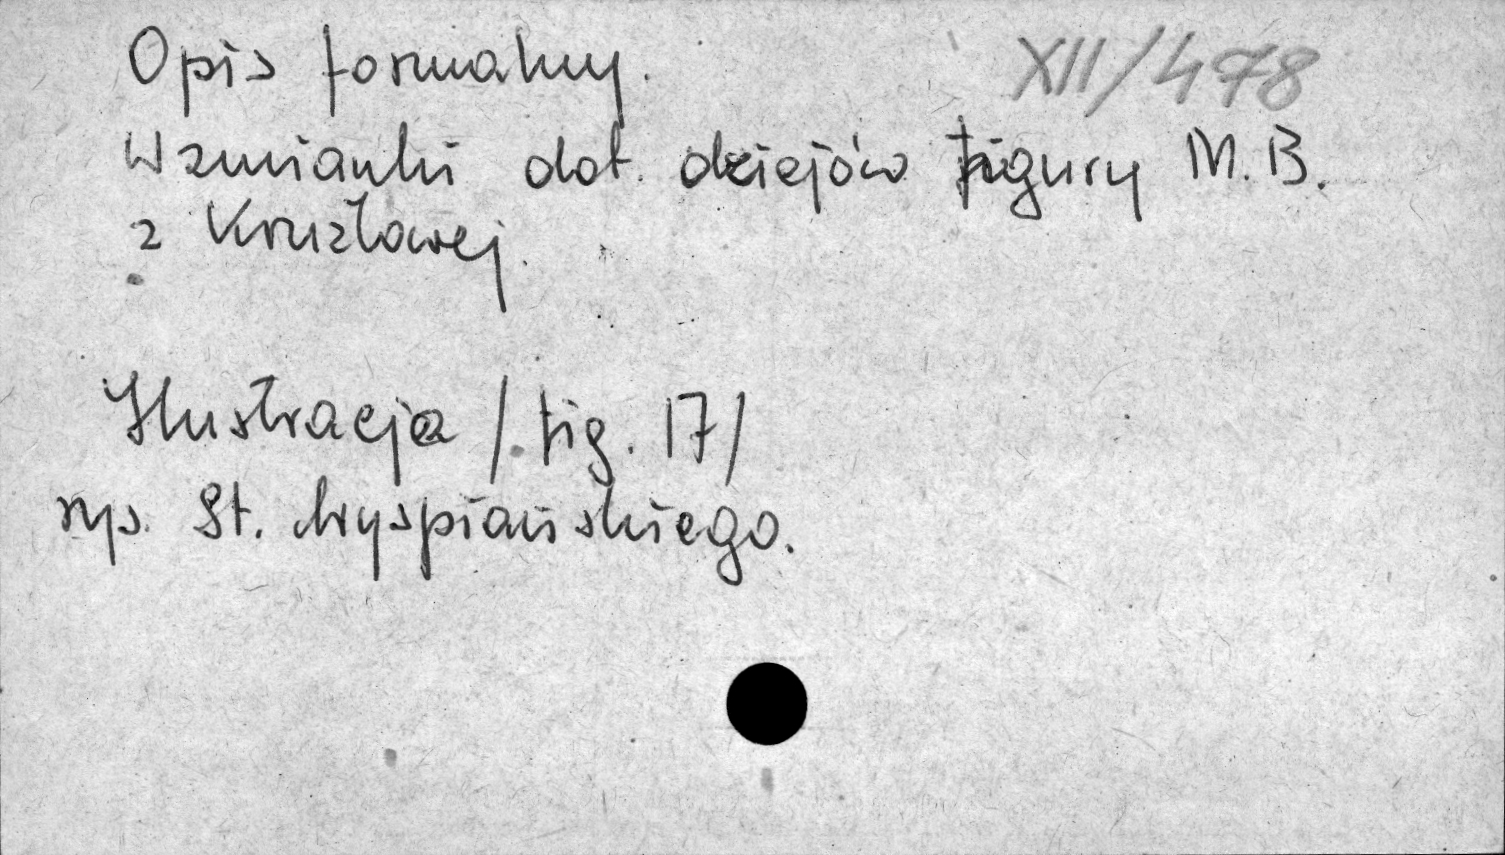 Opis formalny. XII/478
Wzmianki dot. dziejów figury M.B.
z Krużlowej.
Ilustracja / fig. 17/
rys. St. Wyspiańskiego.